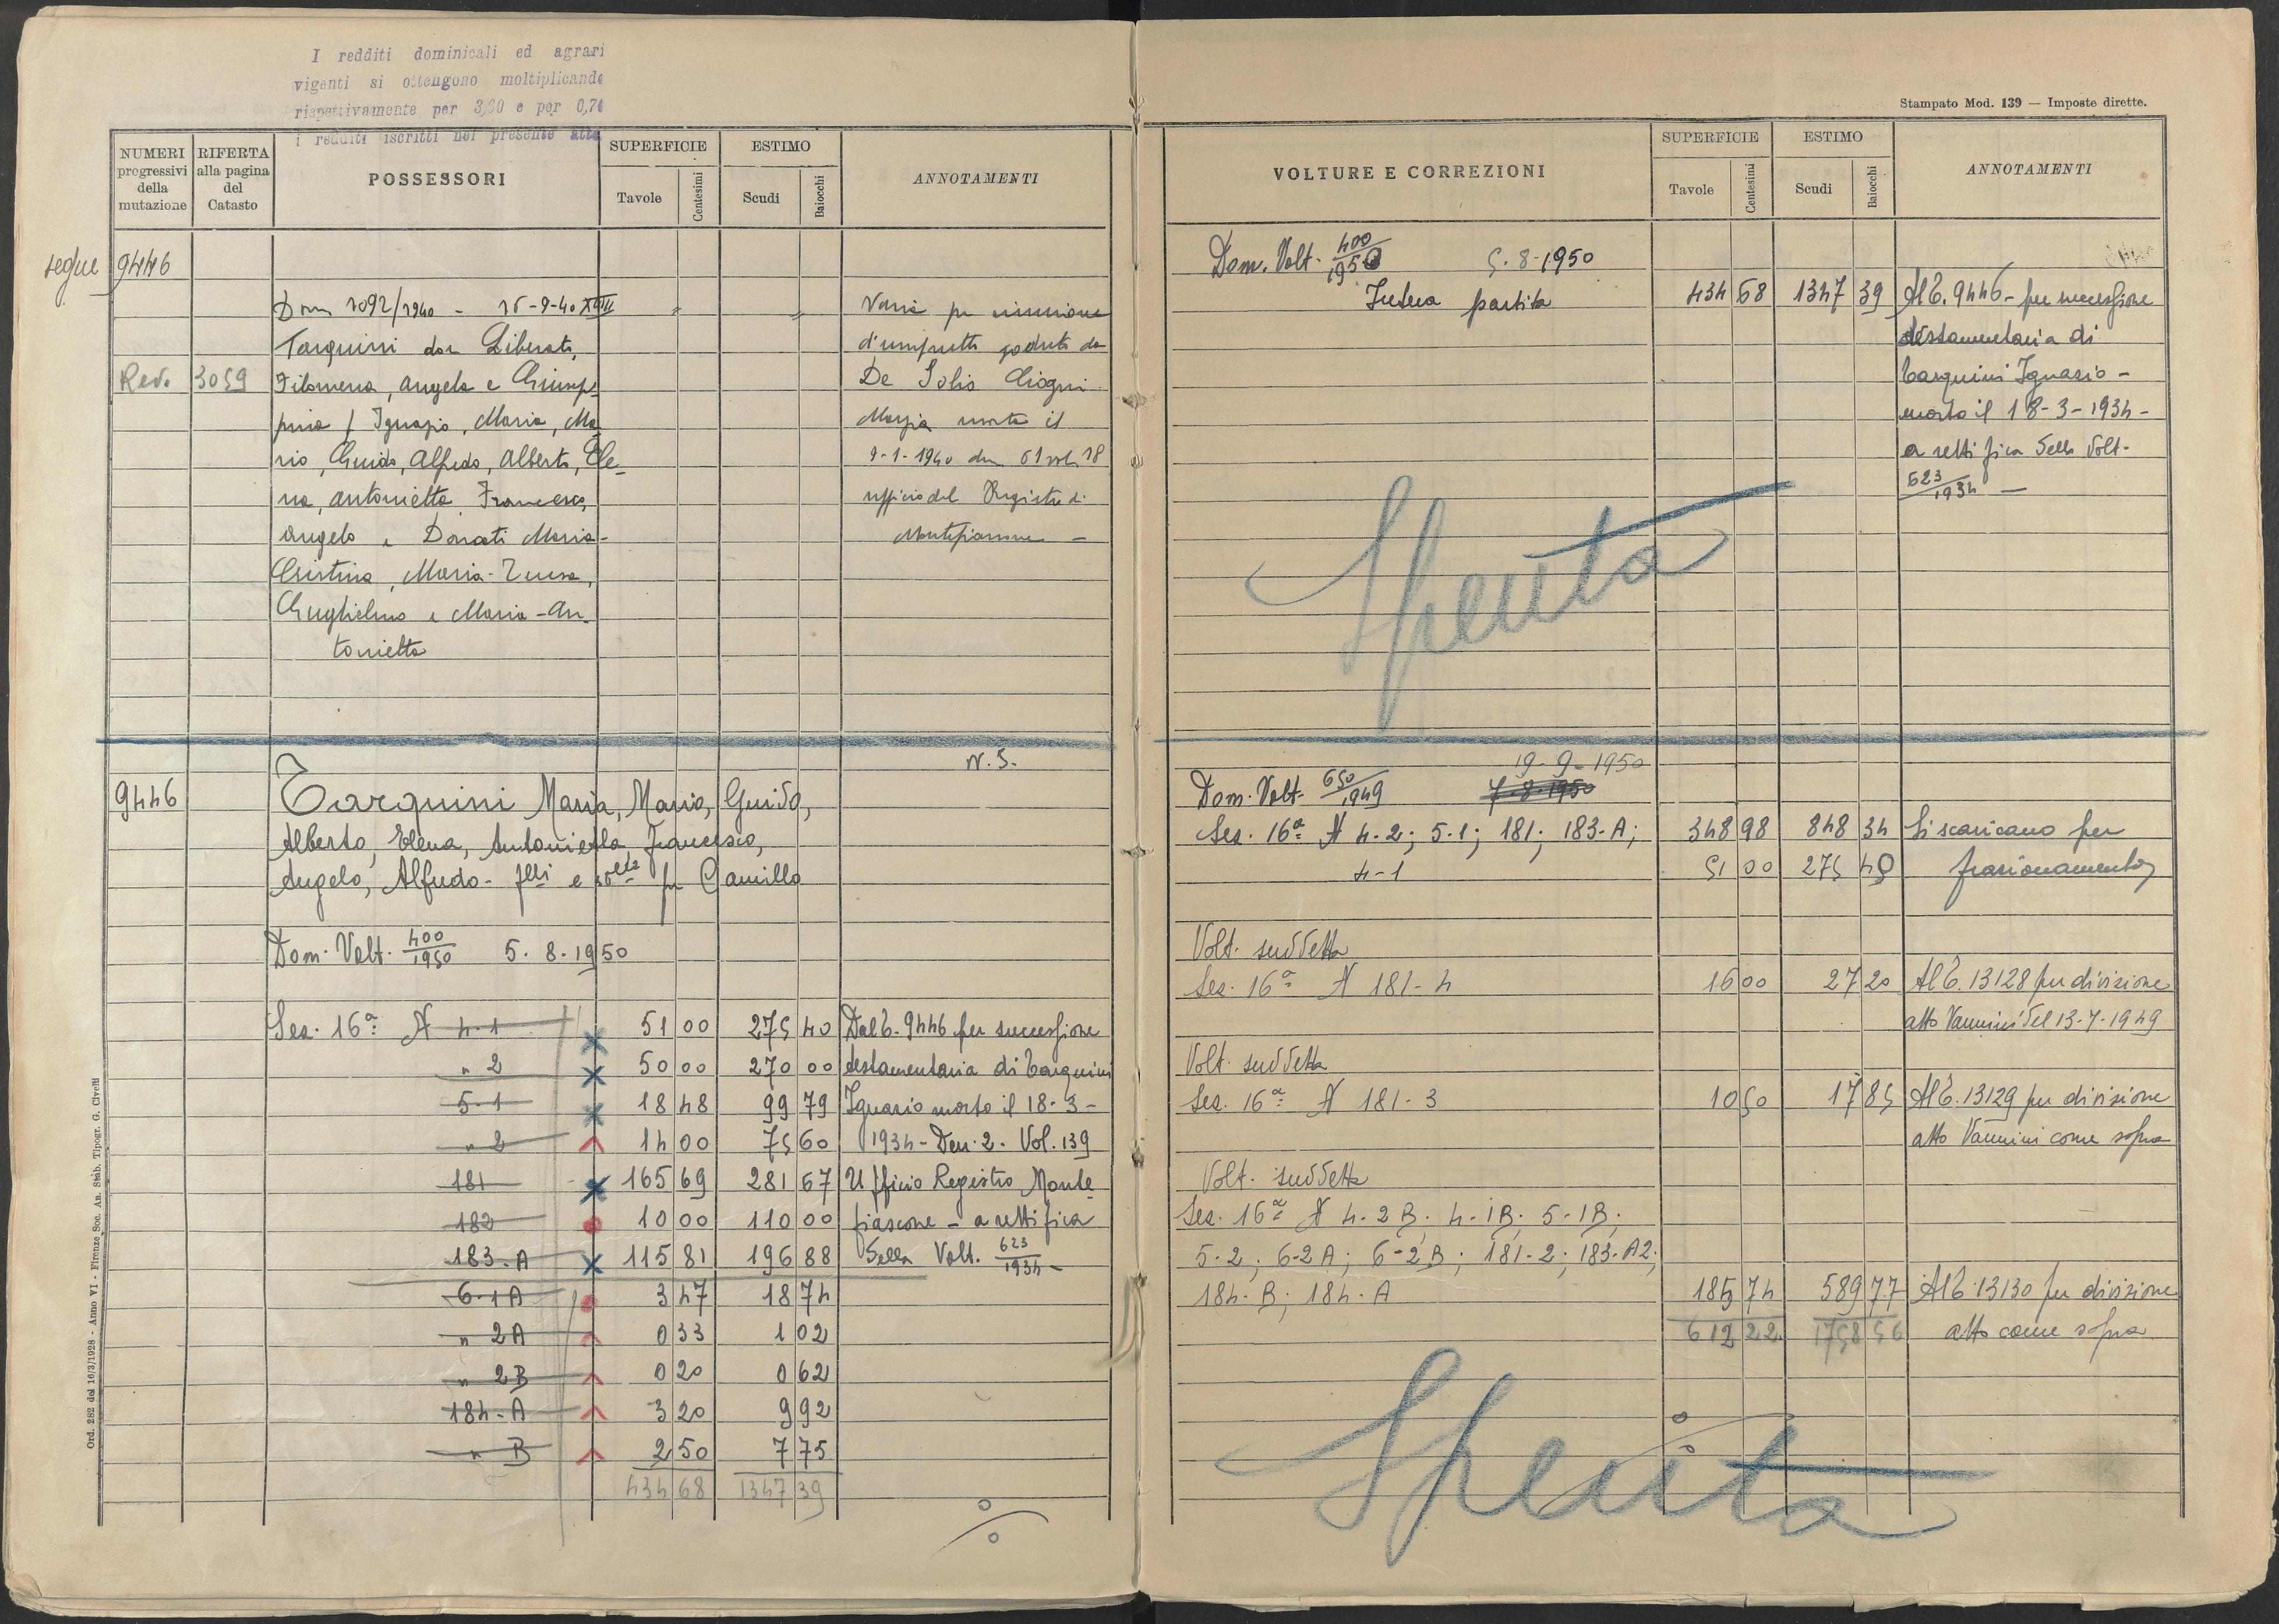 I redditi dominicali ed agrari
vigenti si ottengono moltiplicando
rispettivamente per 3,00 e per 0,70
i redditi iscritti nel presente atto
NUMERI progressivi della mutazione
RIFERTA alla pagina del Catasto
POSSESSORI
SUPERFICIE
Tavole
Centesimi
ESTIMO
Scudi
Baiocchi
ANNOTAMENTI
segue 9446
Dom 1092/1940 - 15-9-40 XVIII
Tarquini don Liberato,
Rev. 3059 Filomena, Angela e Giusep-
pina / Ignazio, Maria, Ma
rio, Guido, Alfredo, Alberto, Ele-
na, Antonietta, Francesco,
Angelo e Donati Maria-
Cristina, Maria-
Guglielmo e Maria-An-
tonietta
Varia per riunione
d'usufrutto goduto da
De Solis
morta il
9-1-1940 den 61 vol. 18
ufficio del Registro di
Montefiascone -
N. 5.
9446 Tarquini Maria, Mario, Guido,
Alberto, Elena, Antonietta, Francesco,
Angelo, Alfredo - flli e slle fu Camillo
Dom. Volt. 400/1950 5. 8. 1950
Sez. 16a N 4-1 51 00 275 40 Dal C. 9446 per successione
" 2 50 00 270 00 testamentaria di Tarquini
5-1 18 48 99 79 Ignazio morto il 18-3-
" 2 14 00 75 60 1934 - Den. 2. Vol. 139
181 165 69 281 67 Ufficio Registro Monte
182 10 00 110 00 fiascone - a rettifica
183-A 115 81 196 88 della Volt. 623/1934 -
6-1A 3 47 18 74
" 2A 0 33 1 02
" 2B 0 20 0 62
184-A 3 20 9 92
" B 2 50 7 75
434 68 1347 39
Ord. 282 del 16/3/1928 - Anno VI - Firenze, Soc. An. Stab. Tipogr. G. Civelli
Stampato Mod. 139 — Imposte dirette.
VOLTURE E CORREZIONI
SUPERFICIE
Tavole
Centesimi
ESTIMO
Scudi
Baiocchi
ANNOTAMENTI
Dom. Volt. 400/1950 5. 8. 1950
Intera partita 434 68 1347 39 Al C. 9446 - per successione
testamentaria di
Tarquini Ignazio -
morto il 18-3-1934 -
a rettifica della Volt.
623/1934 —
Spenta
19-9-1950
Dom. Volt. 650/1949 7-8-1950
Sez. 16a N 4-2; 5-1; 181; 183-A; 348 98 848 34 Si scaricano per
4-1 51 00 275 40 frazionamento
Volt. suddetta
Sez. 16a N 181-4 16 00 27 20 Al C. 13128 per divisione
atto Vannini del 13-7-1949
Volt. suddetta
Sez. 16a N 181-3 10 50 17 85 Al C. 13129 per divisione
atto Vannini come sopra
Volt. suddetta
Sez. 16a N 4-2B; 4-1B; 5-1B;
5-2; 6-2A; 6-2B; 181-2; 183-A2;
184-B; 184-A 185 74 589 77 Al C. 13130 per divisione
612 22 1758 56 atto come sopra
Spenta